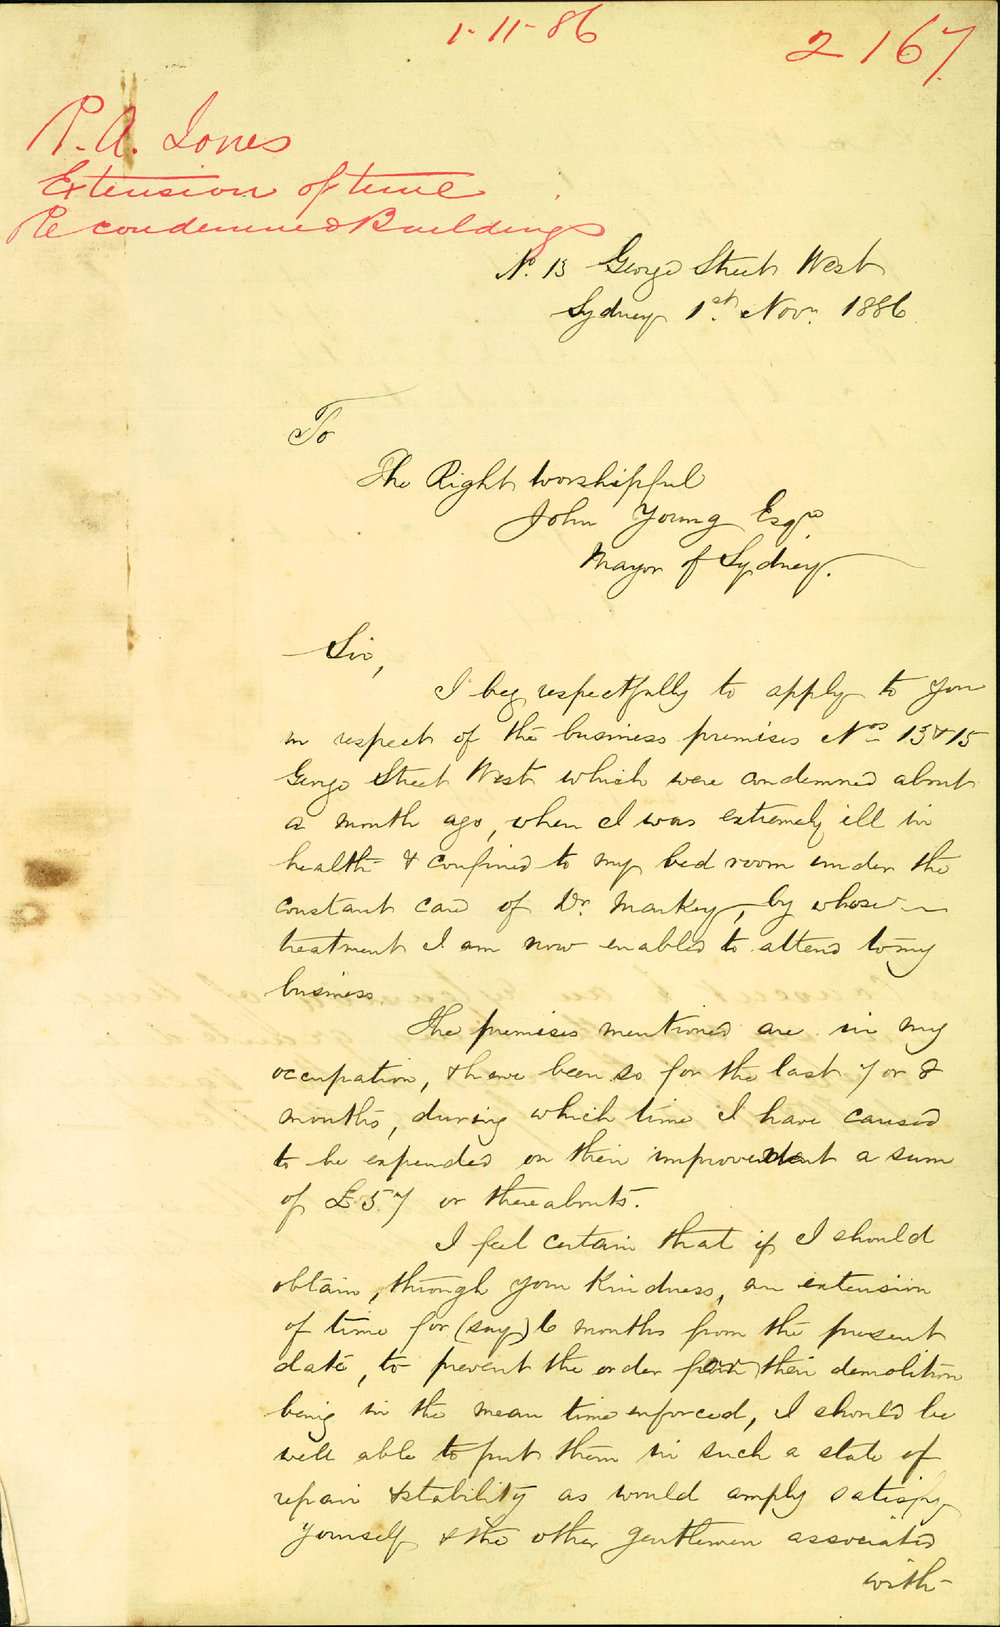 1-11-86
2167
P. A. Jones
Extension of time
Re condemned Buildings
No. 13 George Street West
Sydney 1st. Novr. 1886
To
The Right Worshipful
John Young Esqre
Mayor of Sydney.
Sir,
I beg respectfully to apply to you
in respect of the business premises Nos 13 & 15
George Street West which were condemned about
a month ago, when I was extremely ill in
health & confined to my bed room under the
constant care of Dr. Markey, by whose
treatment I am now enabled to attend to my
business
The premises mentioned are in my
occupation, & have been so for the last 7 or 8
months, during which time I have caused
to be expended on their improvement a sum
of £57 or thereabouts.
I feel certain that if I should
obtain, through your kindness, an extension
of time for (say) 6 months from the present
date, to prevent the order for their demolition
being in the mean time enforced, I should be
well able to put them in such a state of
repair & stability as would amply satisfy
yourself & the other gentlemen associated
with